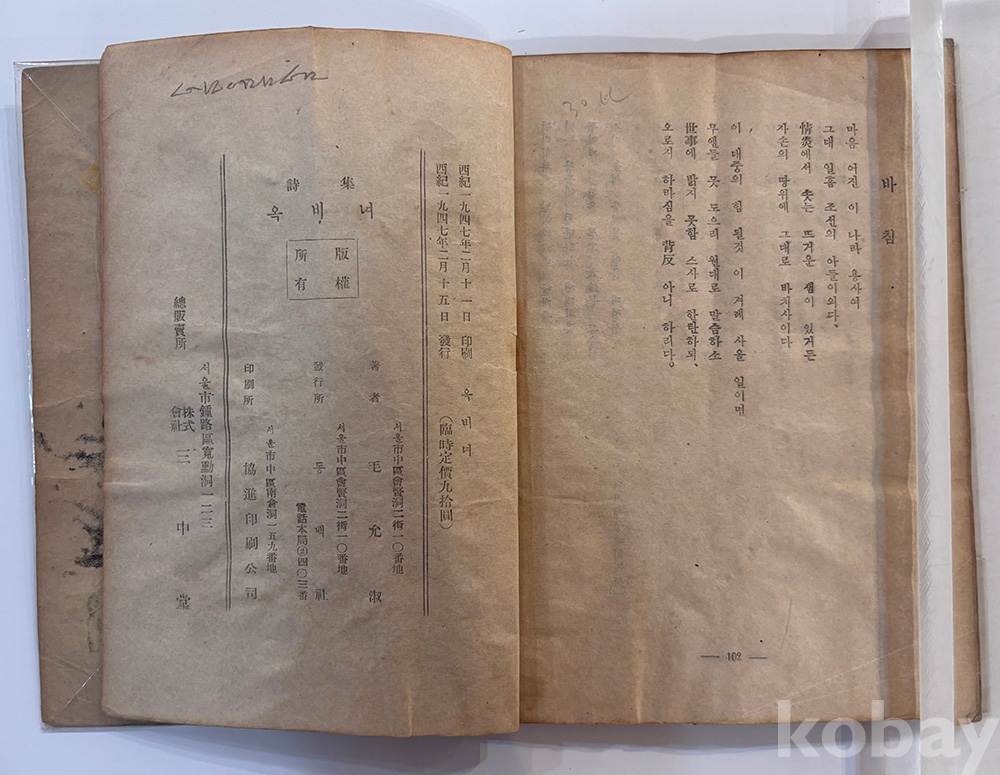 바침
마음 어진 이 나라 용사여
그대 일홈 조선의 아들이외다.
情炎에서 솟는 뜨거운 샘이 있거든
자손의 땅위에 그대로 바치사이다
이 대중의 힘 될것 이 겨레 사올 일이면
무엔들 못 도으리 원대로 말슴하소
世事에 밝지 못함 스사로 한탄하되,
오로지 하라심을 背反 아니 하리다.
— 102 —
西紀一九四七年二月十一日 印刷
西紀一九四七年二月十五日 發行
옥비녀
(臨時定價九拾圓)
詩集
옥비녀
版權
所有
著者
서울市中區會賢洞二街一〇番地
毛允淑
發行所
서울市中區會賢洞二街一〇番地
동백社
電話本局②四〇三番
印刷所
서울市中區南倉洞一五九番地
協進印刷公司
總販賣所
서울市鍾路區寬勳洞一二三
株式會社 三中堂
kobay